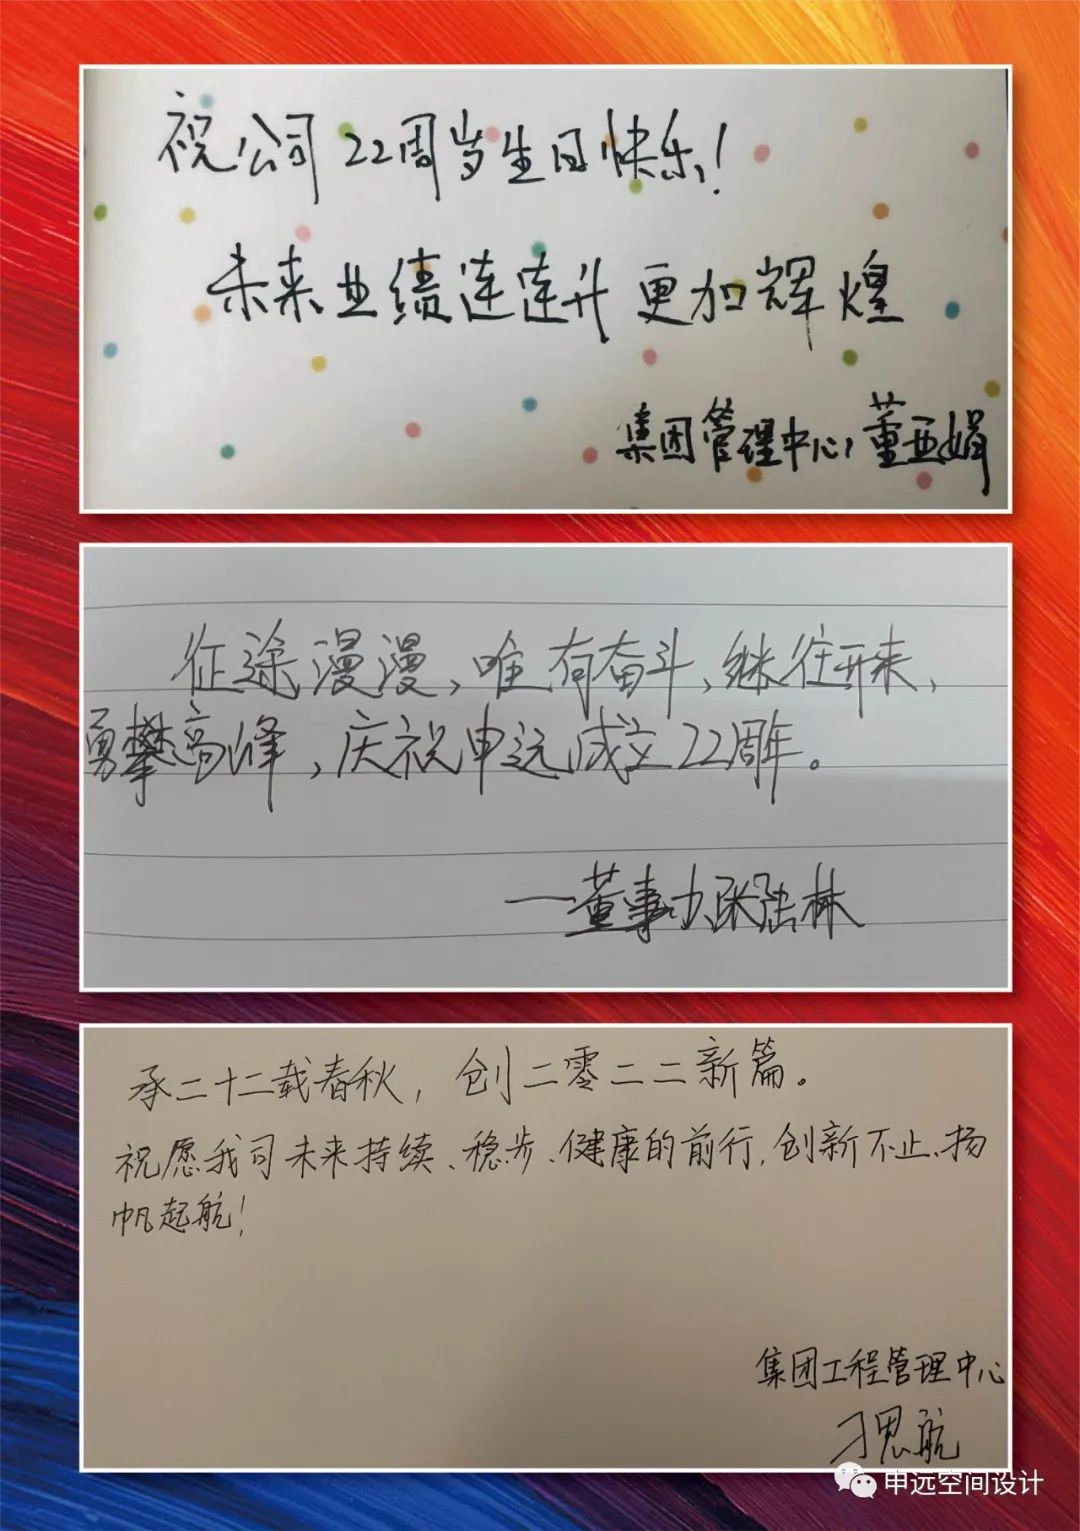 祝公司22周岁生日快乐!
未来业绩连连升更加辉煌
集团管理中心,董亚娟
征途漫漫,唯有奋斗,继往开来,
勇攀高峰,庆祝申远成立22周年。
一董事办
承二十二载春秋,创二零二二新篇。
祝愿我司未来持续、稳步、健康的前行,创新不止、扬
帆起航!
集团工程管理中心
刁思航
申远空间设计